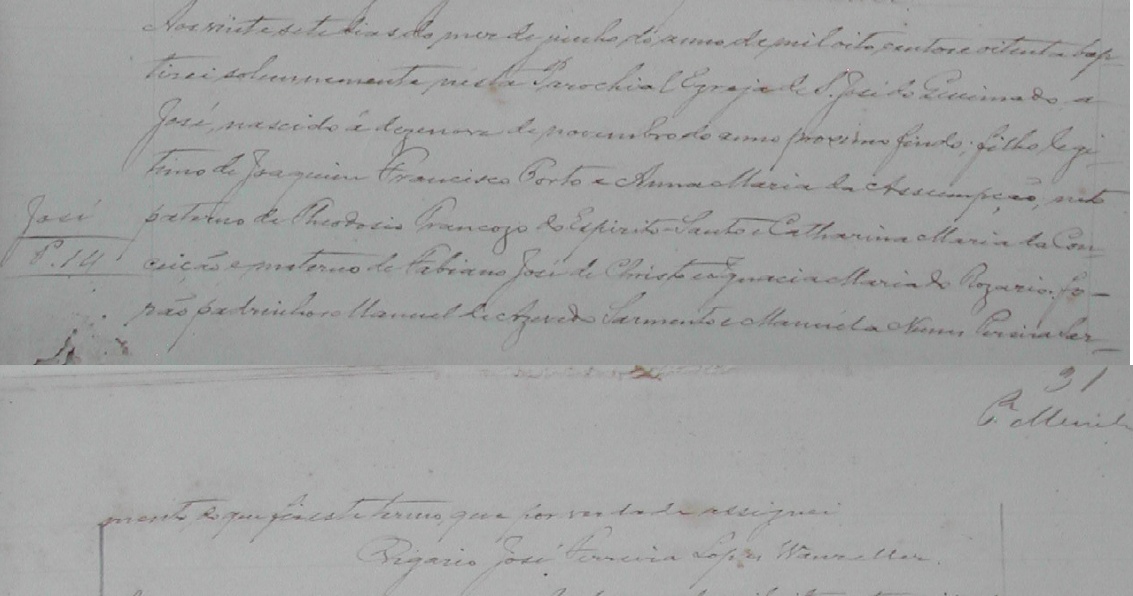 Aos vinte sete dias do mez de junho do anno de mil oito centos e oitenta bap-
tizei solemnemente nesta Parochial Egreja de S. José do Queimado, a
José, nascido á dezenove de novembro do anno proximo findo; filho legi-
timo de Joaquim Francisco Porto e Anna Maria da Assumpção, neto
José
paterno de Theodosio Francozo do Espirito-Santo e Catharina Maria da Con-
P. 14
ceição e materno de Fabiano José de Christo e Ignacia Maria do Rozario. Fo-
rão padrinhos Manuel de Azevedo Sarmento e Manuela Nunes Pereira Sar-
31
mento do que fiz este termo, que por verdade assignei
Vigario José Ferreira Lopes Wanzeller.